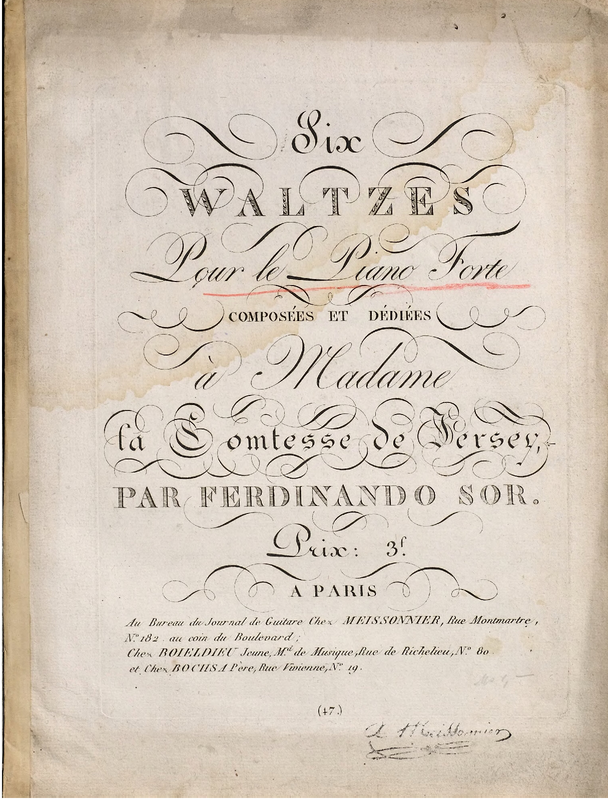 Six
WALTZES
Pour le Piano Forte
COMPOSÉES ET DÉDIÉES
à Madame
la Comtesse de Jersey,
PAR FERDINANDO SOR.
Prix: 3f.
A PARIS
Au Bureau du Journal de Guitare Chez MEISSONNIER, Rue Montmartre,
No. 182. au coin du Boulevard;
Chez BOIELDIEU Jeune, Md. de Musique, Rue de Richelieu, No. 80
et Chez BOCHSA Père, Rue Vivienne, No. 19.
(47.)
A Meissonnier